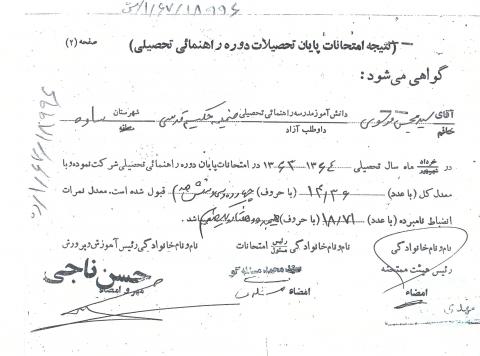 (نتیجه امتحانات پایان تحصیلات دوره راهنمائی تحصیلی) صفحه (۲)
گواهی می‌شود:
آقای
خانم
سید محسن موسوی دانش‌آموز مدرسه راهنمائی تحصیلی
داوطلب آزاد
حکیم قدسی شهرستان ساوه
منطقه
در خرداد ماه سال تحصیلی ۱۳۶۴ ۱۳۶۳ در امتحانات پایان دوره راهنمائی تحصیلی شرکت نموده و با
شهریور
معدل کل (با عدد) ۱۴/۳۶ (با حروف) چهارده و سی و شش صدم قبول شده است. معدل نمرات
انضباط نامبرده (با عدد) ۱۸/۷۱ (با حروف) می‌باشد.
نام و نام خانوادگی نام و نام خانوادگی رئیس امتحانات نام و نام خانوادگی رئیس آموزش و پرورش
مسئول
رئیس هیئت ممتحنه حسن ناجی
امضاء امضاء مهر و امضاء
مهدی